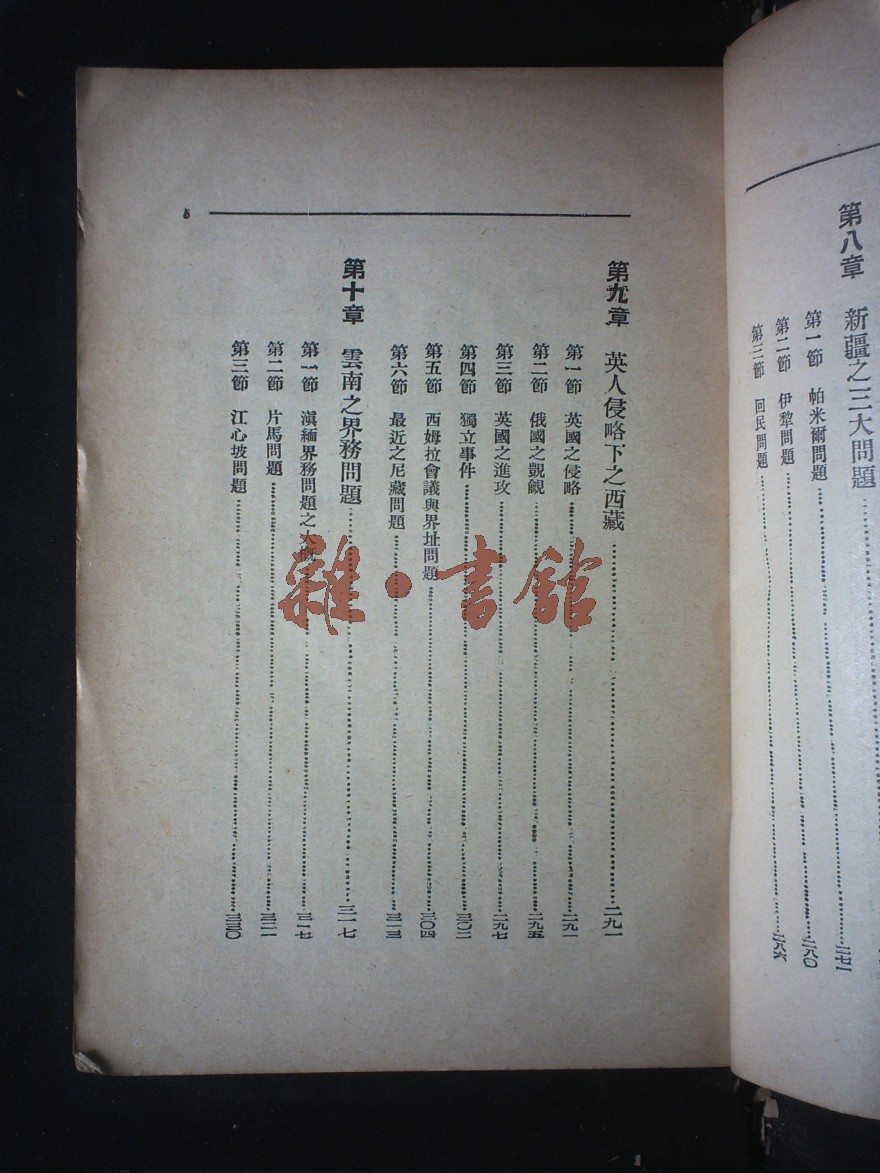 第八章 新疆之三大問題
第一節 帕米爾問題 二七一
第二節 伊犂問題 二八〇
第三節 回民問題 二八六
第九章 英人侵略下之西藏 二九一
第一節 英國之侵略 二九一
第二節 俄國之覬覦 二九五
第三節 英國之進攻 二九七
第四節 獨立事件 三〇二
第五節 西姆拉會議與界址問題 三〇四
第六節 最近之尼藏問題 三一三
第十章 雲南之界務問題 三一七
第一節 滇緬界務問題之大概 三一七
第二節 片馬問題 三二一
第三節 江心坡問題 三三〇
雜·書館